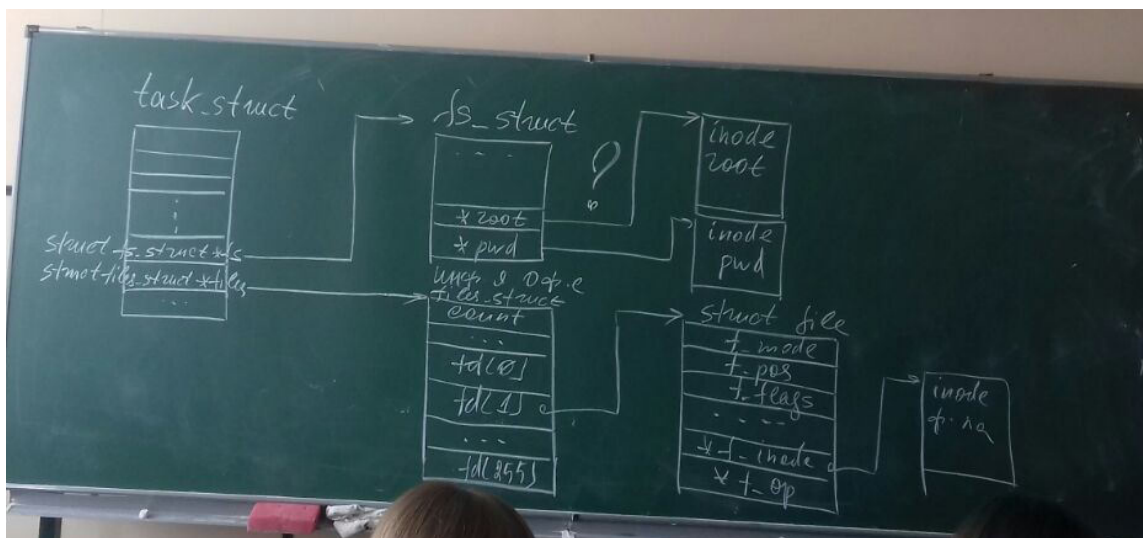 task_struct
struct fs_struct *fs
struct files_struct *files
...
fs_struct
...
?
* root
* pwd
inode
root
inode
pwd
инф. я о ф. с
files_struct
count
...
fd[0]
fd[1]
...
fd[255]
struct file
f_mode
f_pos
f_flags
...
* f_inode
* f_op
inode
ф. ла